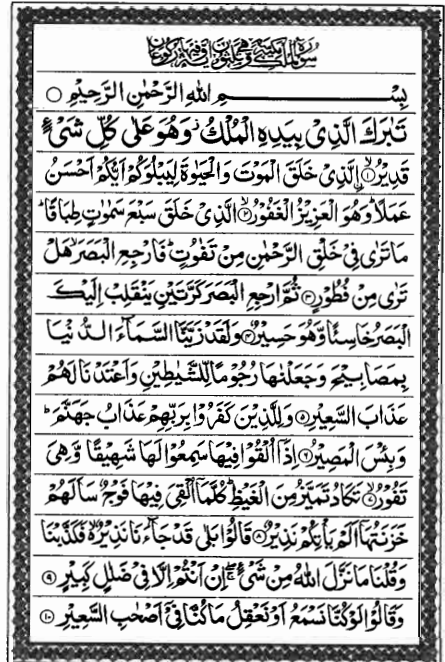 سورة الملك مكية وهي ثلثون اية وفيها ركوعان
بِسْمِ اللهِ الرَّحْمٰنِ الرَّحِيْمِ ○
تَبٰرَكَ الَّذِيْ بِيَدِهِ الْمُلْكُ ز وَهُوَ عَلٰى كُلِّ شَيْءٍ
قَدِيْرُ ۨ ۝۱ الَّذِيْ خَلَقَ الْمَوْتَ وَالْحَيٰوةَ لِيَبْلُوَكُمْ اَيُّكُمْ اَحْسَنُ
عَمَلًا ؕ وَهُوَ الْعَزِيْزُ الْغَفُوْرُ ۝۲ الَّذِيْ خَلَقَ سَبْعَ سَمٰوٰتٍ طِبَاقًا ؕ
مَا تَرٰى فِيْ خَلْقِ الرَّحْمٰنِ مِنْ تَفٰوُتٍ ؕ فَارْجِعِ الْبَصَرَ ۙ هَلْ
تَرٰى مِنْ فُطُوْرٍ ۝۳ ثُمَّ ارْجِعِ الْبَصَرَ كَرَّتَيْنِ يَنْقَلِبْ اِلَيْكَ
الْبَصَرُ خَاسِئًا وَّهُوَ حَسِيْرٌ ۝۴ وَلَقَدْ زَيَّنَّا السَّمَآءَ الدُّنْيَا
بِمَصَابِيْحَ وَجَعَلْنٰهَا رُجُوْمًا لِّلشَّيٰطِيْنِ وَاَعْتَدْنَا لَهُمْ
عَذَابَ السَّعِيْرِ ۝۵ وَلِلَّذِيْنَ كَفَرُوْا بِرَبِّهِمْ عَذَابُ جَهَنَّمَ ؕ
وَبِئْسَ الْمَصِيْرُ ۝۶ اِذَآ اُلْقُوْا فِيْهَا سَمِعُوْا لَهَا شَهِيْقًا وَّهِيَ
تَفُوْرُ ۝۷ تَكَادُ تَمَيَّزُ مِنَ الْغَيْظِ ؕ كُلَّمَآ اُلْقِيَ فِيْهَا فَوْجٌ سَاَلَهُمْ
خَزَنَتُهَآ اَلَمْ يَاْتِكُمْ نَذِيْرٌ ۝۸ قَالُوْا بَلٰى قَدْ جَآءَنَا نَذِيْرٌ ۙ فَكَذَّبْنَا
وَقُلْنَا مَا نَزَّلَ اللهُ مِنْ شَيْءٍ ۚ اِنْ اَنْتُمْ اِلَّا فِيْ ضَلٰلٍ كَبِيْرٍ ۝۹
وَقَالُوْا لَوْ كُنَّا نَسْمَعُ اَوْ نَعْقِلُ مَا كُنَّا فِيْٓ اَصْحٰبِ السَّعِيْرِ ۝۱۰